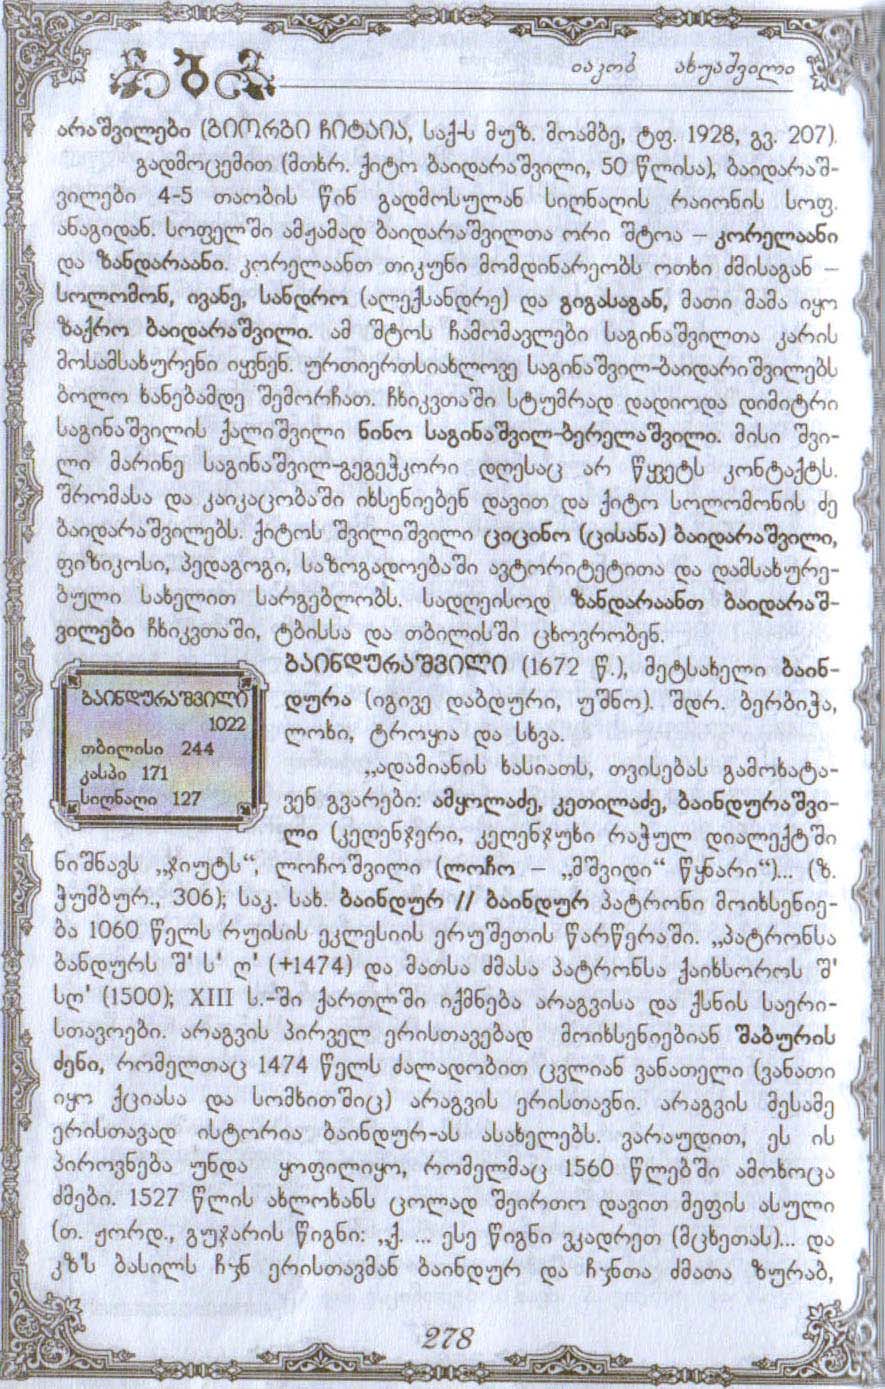 ბ
იაკობ ახუაშვილი
არაშვილები (გიორგი ჩიტაია, საქ-ს მუზ. მოამბე, ტფ. 1928, გვ. 207).
გადმოცემით (მთხრ. ქიტო ბაიდარაშვილი, 50 წლისა), ბაიდარაშ-
ვილები 4-5 თაობის წინ გადმოსულან სიღნაღის რაიონის სოფ.
ანაგიდან. სოფელში ამჟამად ბაიდარაშვილთა ორი შტოა – კორელაანი
და ზანდარაანი. კორელაანთ თიკუნი მომდინარეობს ოთხი ძმისაგან –
სოლომონ, ივანე, სანდრო (ალექსანდრე) და გიგასაგან, მათი მამა იყო
ზაქრო ბაიდარაშვილი. ამ შტოს ჩამომავლები საგინაშვილთა კარის
მოსამსახურენი იყვნენ. ურთიერთსიახლოვე საგინაშვილ-ბაიდარიშვილებს
ბოლო ხანებამდე შემორჩათ. ჩხიკვთაში სტუმრად დადიოდა დიმიტრი
საგინაშვილის ქალიშვილი ნინო საგინაშვილ-ბერელაშვილი. მისი შვი-
ლი მარინე საგინაშვილ-გეგეჭკორი დღესაც არ წყვეტს კონტაქტს.
შრომასა და კაიკაცობაში იხსენიებენ დავით და ქიტო სოლომონის ძე
ბაიდარაშვილებს. ქიტოს შვილიშვილი ციცინო (ცისანა) ბაიდარაშვილი,
ფიზიკოსი, პედაგოგი, საზოგადოებაში ავტორიტეტითა და დამსახურე-
ბული სახელით სარგებლობს. სადღეისოდ ზანდარაანთ ბაიდარაშ-
ვილები ჩხიკვთაში, ტბისსა და თბილისში ცხოვრობენ.
ბაინდურაშვილი
1022
თბილისი 244
კასპი 171
სიღნაღი 127
ბაინდურაშვილი (1672 წ.), მეტსახელი ბაინ-
დურა (იგივე დაბდური, უშნო). შდრ. ბერბიჭა,
ლოხი, ტროყია და სხვა.
„ადამიანის ხასიათს, თვისებას გამოხატა-
ვენ გვარები: ამყოლაძე, კეთილაძე, ბაინდურაშვი-
ლი (კეღენჯერი, კეღენჯუხი რაჭულ დიალექტში
ნიშნავს „ჯიუტს“, ლოჩოშვილი (ლოჩო – „მშვიდი“ წყნარი“)... (ზ.
ჭუმბურ., 306); საკ. სახ. ბაინდურ // ბაინდურ პატრონი მოიხსენიე-
ბა 1060 წელს რუისის ეკლესიის ერუშეთის წარწერაში. „პატრონსა
ბანდურს შ' ს' ღ' (+1474) და მათსა ძმასა პატრონსა ქაიხსოროს შ'
სღ' (1500); XIII ს.-ში ქართლში იქმნება არაგვისა და ქსნის საერი-
სთავოები. არაგვის პირველ ერისთავებად მოიხსენიებიან შაბურის
ძენი, რომელთაც 1474 წელს ძალადობით ცვლიან ვანათელი (ვანათი
იყო ქციასა და სომხითშიც) არაგვის ერისთავნი. არაგვის მესამე
ერისთავად ისტორია ბაინდურ-ას ასახელებს. ვარაუდით, ეს ის
პიროვნება უნდა ყოფილიყო, რომელმაც 1560 წლებში ამოხოცა
ძმები. 1527 წლის ახლოხანს ცოლად შეირთო დავით მეფის ასული
(თ. ჟორდ., გუჯარის წიგნი: „ქ. ... ესე წიგნი ვკადრეთ (მცხეთას)... და
კზს ბასილს ჩ ნ ერისთავმან ბაინდურ და ჩ ნთა ძმათა ზურაბ,
278